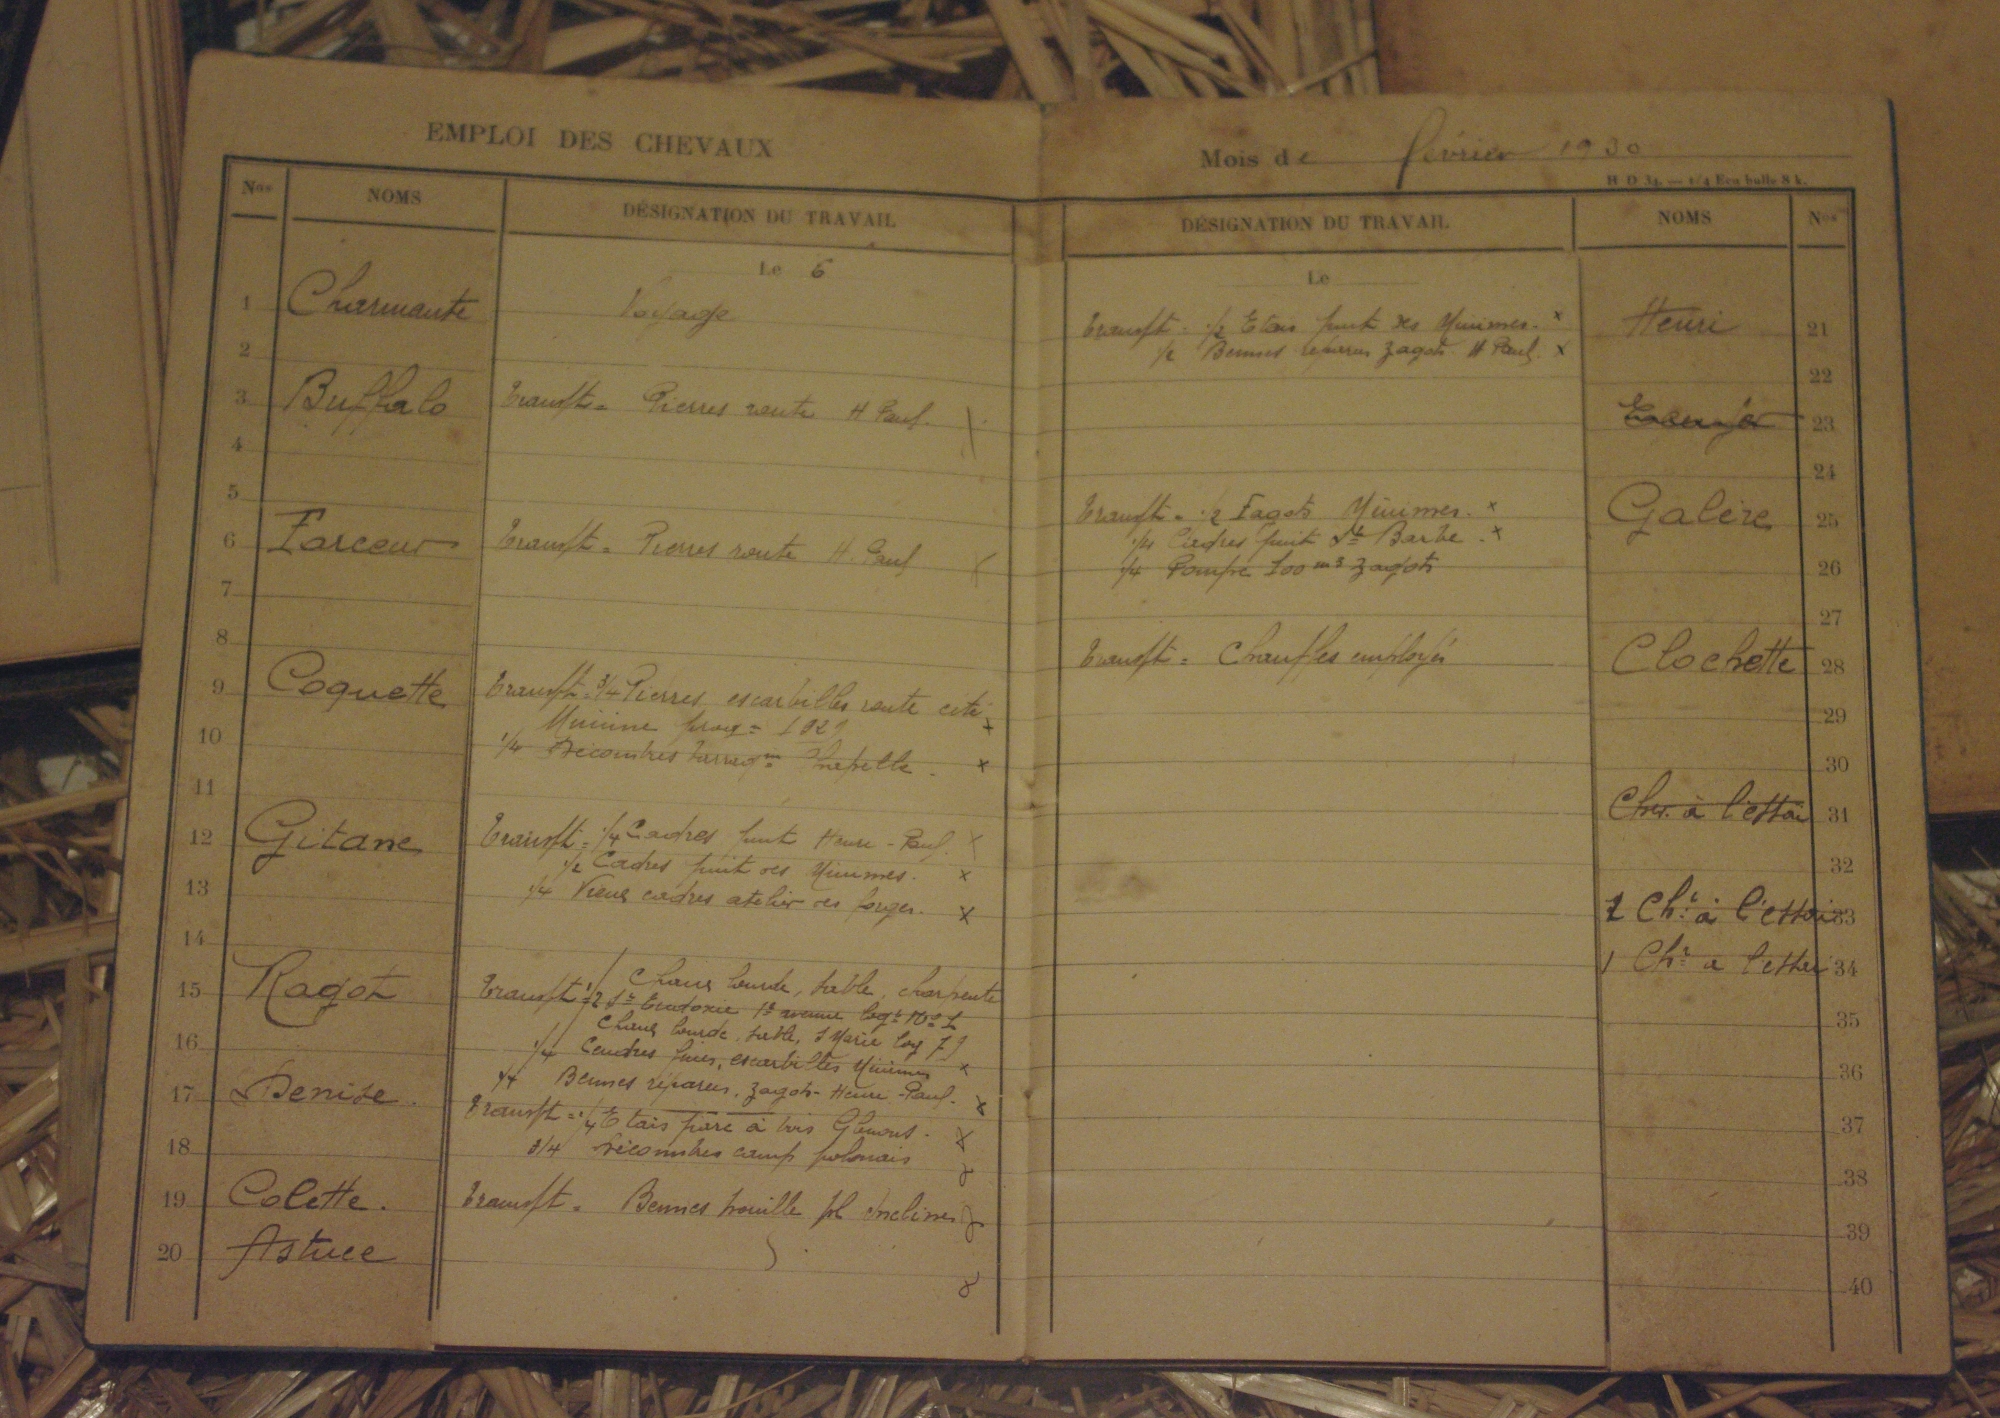 EMPLOI DES CHEVAUX
Nos NOMS DÉSIGNATION DU TRAVAIL
Le 6
1 Charmante Voyage
2
3 Buffalo Transpt = Pierres route H Paul.
4
5
6 Farceur Transpt = Pierres route H. Paul
7
8
9 Coquette Transpt = 3/4 Pierres, escarbilles route cité
Minime 1929
10 1/4 Décombres
11
12 Gitane Transpt = 1/4 Cadres puit Henri-Paul. x
1/2 Cadres puit des Minimes. x
13 1/4 Vieux cadres atelier des forges. x
14
15 Ragot Transpt = 1/2 Chaux lourde, sable, charpente
Ste Eudoxie 1e avenue logt No 1
Chaux lourde, sable, S Marie log 79
16 1/4 Cendres fines, escarbilles Minimes x
1/4 Bennes réparées, Zagots-Henri-Paul. x
17 Denise. Transpt = 1/4 Etais parc à bois Glenons.
18 3/4 Décombres camp polonais
19 Colette. Transpt = Bennes houille pl Inclines
20 Astuce
Mois de février 1930
H D 34. — 1/4 Ecu bulle 8 k.
DÉSIGNATION DU TRAVAIL NOMS Nos
Le
Transpt = 1/2 Etais puit des Minimes. x Henri 21
1/2 Bennes réparées Zagots H Paul. x
22
23
24
Transpt = 1/2 Fagots Minimes. x Galère 25
1/4 Cadres puit Ste Barbe. x
1/4 Pompe 100 m3 Zagots 26
27
Transpt = Chauffles employés Clochette 28
29
30
Chx. à l'essai 31
32
1 Chl à l'essai 33
1 Chl à l'essai 34
35
36
37
38
39
40